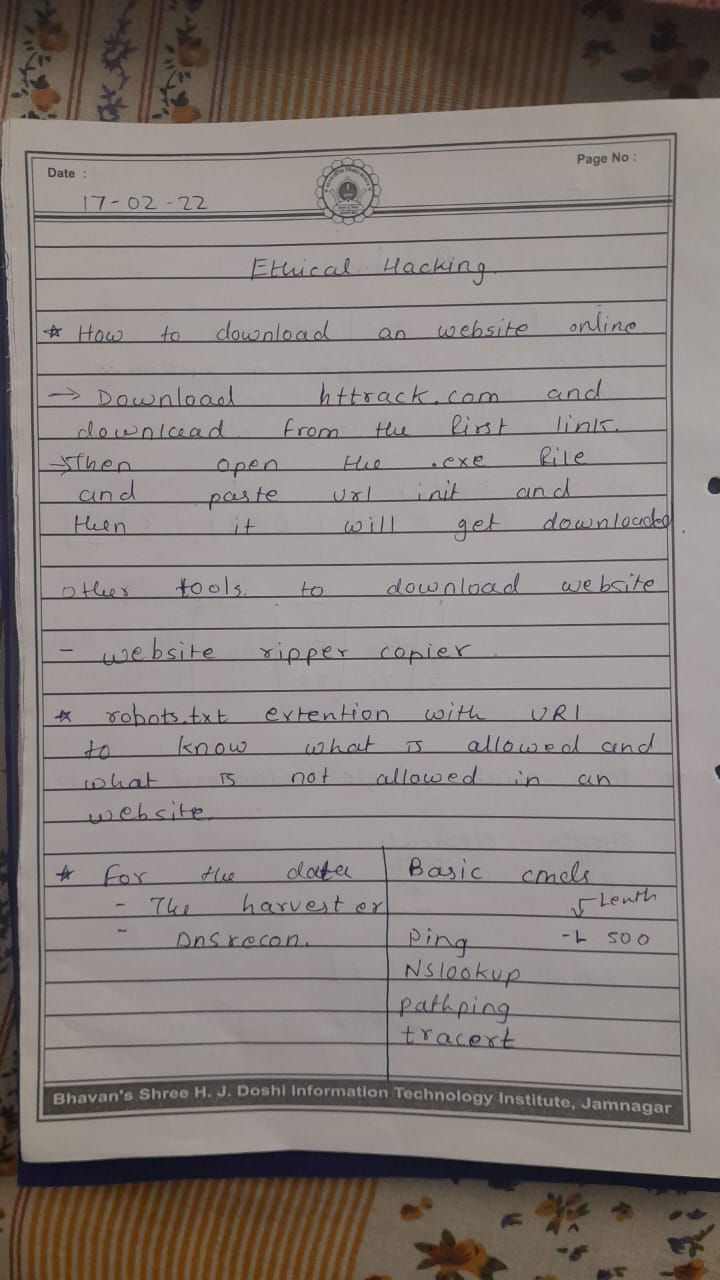 Date :
Page No :
17-02-22
Ethical Hacking
* How to download an website online
→ Download httrack.com and
downlcead from the first link.
→ Then open the .exe file
and paste url init and
then it will get downloaded
other tools. to download website
- website ripper copier
* robots.txt extention with URl
to know what is allowed and
what is not allowed in an
website.
* For the data
- The harvester
- Dnsrecon.
Basic cmds
↓ Lenth
Ping -L 500
Nslookup
pathping
tracert
Bhavan's Shree H. J. Doshi Information Technology Institute, Jamnagar